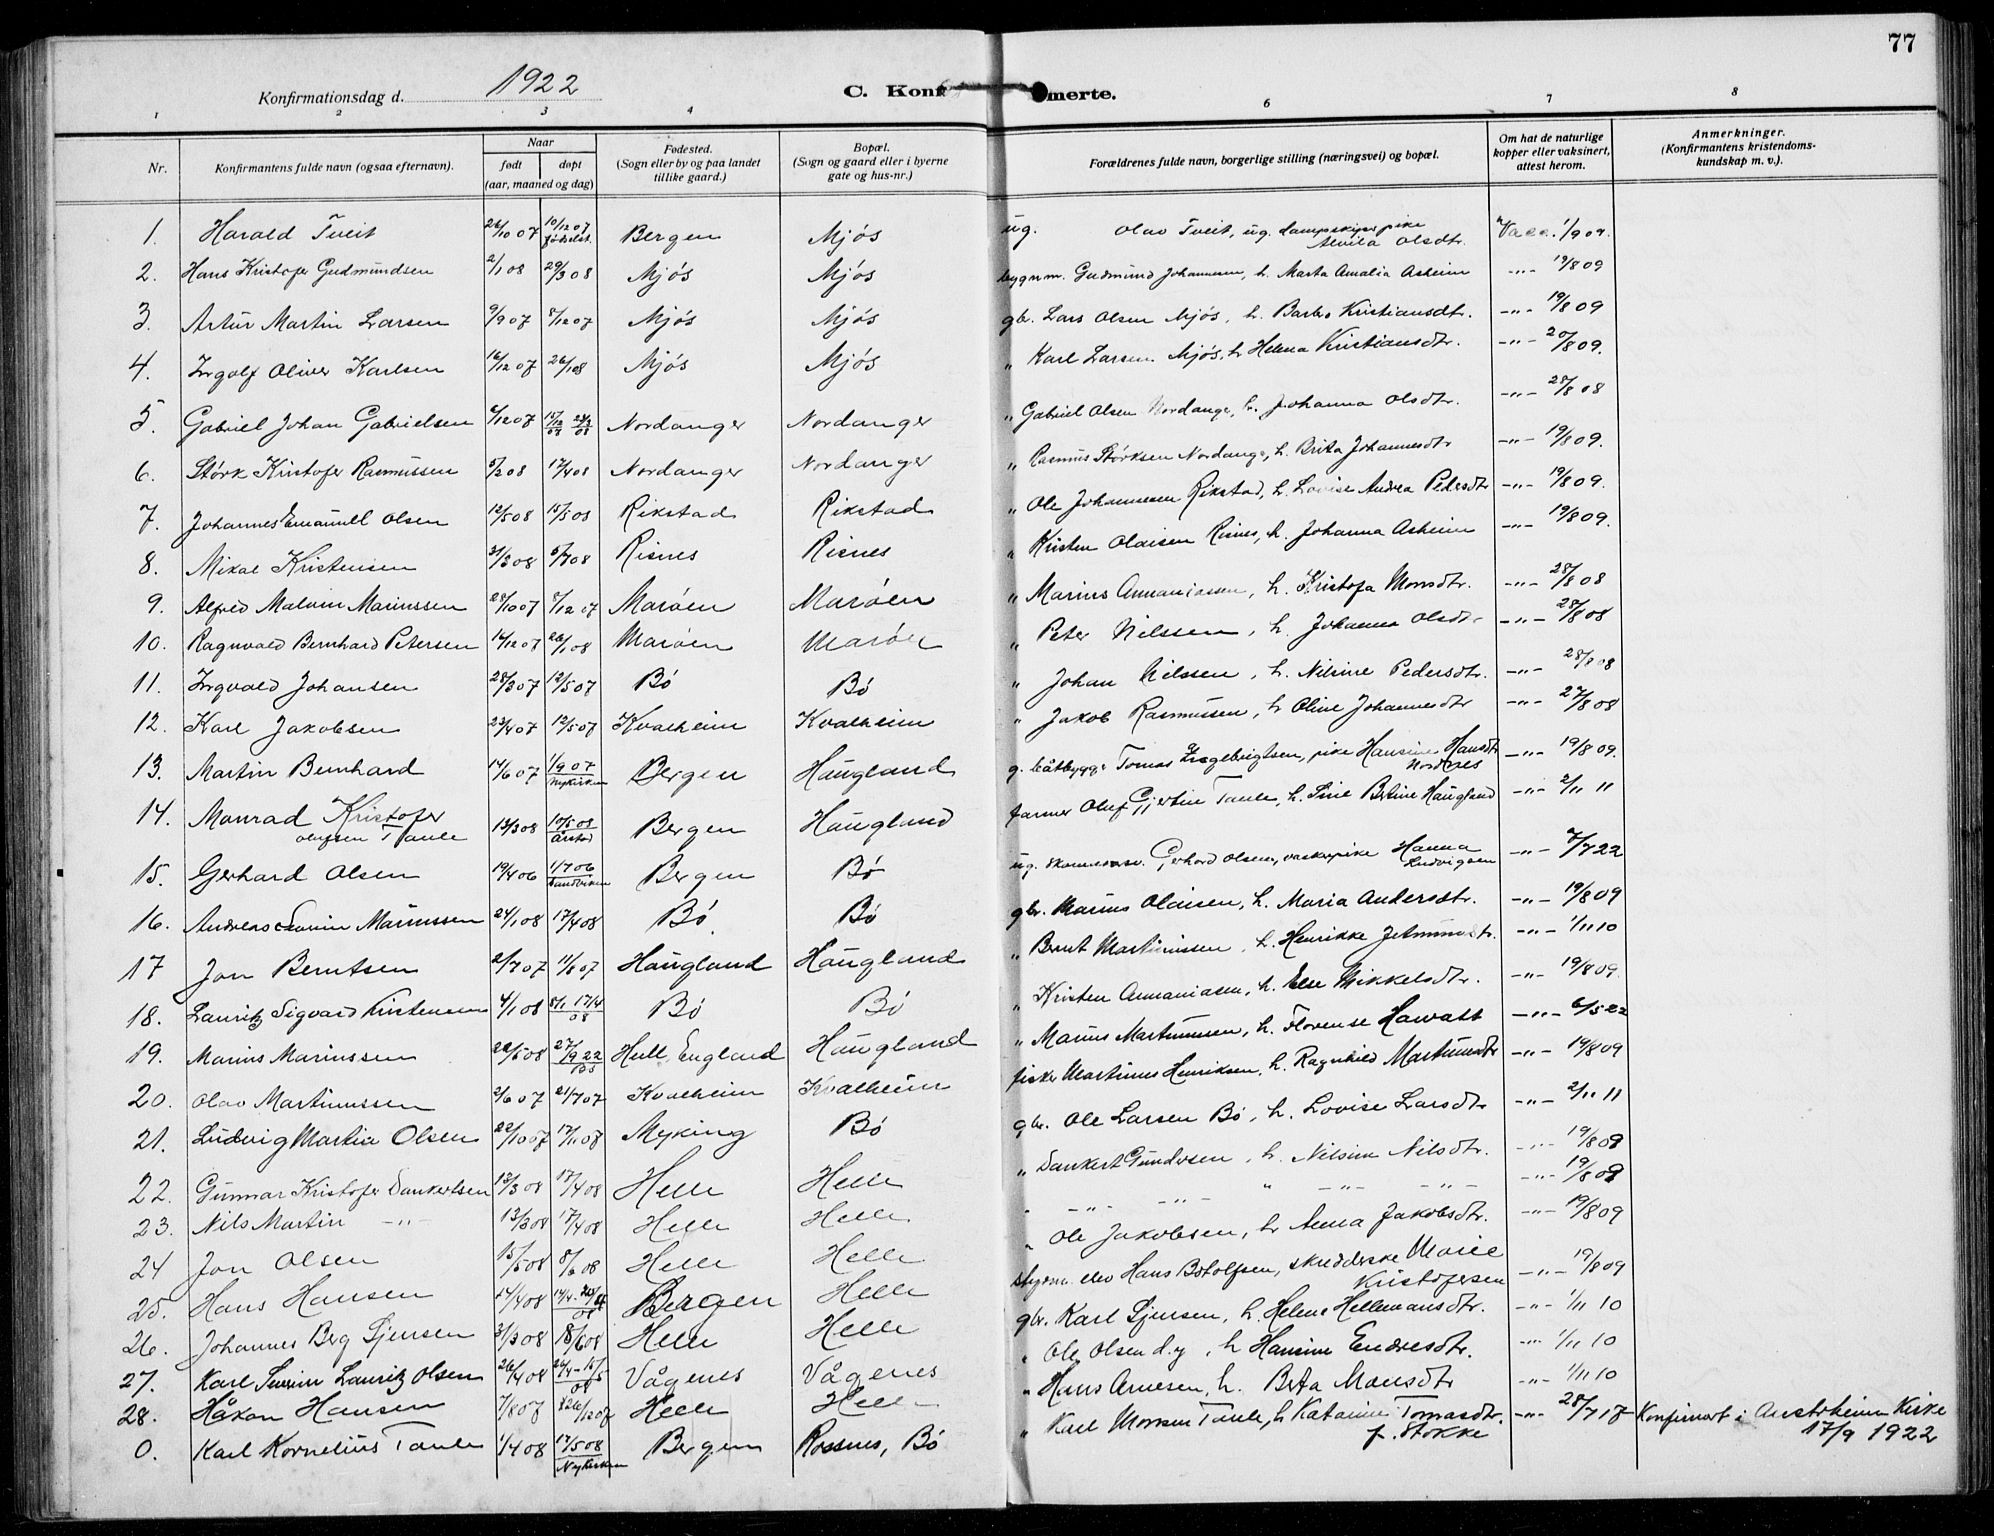 77
Konfirmationsdag d. 1922
C. Konf merte.
1 2 3 4 6 7 8
Nr.
Konfirmantens fulde navn (ogsaa efternavn).
Naar
født døpt
(aar, maaned og dag)
Fødested.
(Sogn eller by og paa landet
tillike gaard.)
Bopæl.
(Sogn og gaard eller i byerne
gate og hus-nr.)
Forældrenes fulde navn, borgerlige stilling (næringsvei) og bopæl.
Om hat de naturlige
kopper eller vaksinert,
attest herom.
Anmerkninger.
(Konfirmantens kristendoms-
kundskap m. v.).
1. Harald Tveit 26/10 07 10/12 07 Bergen Mjøs ug. Olav Tveit, ug. Olsdtr. Vacc. 1/9 09.
2. Hans Kristofer Gudmundsen 2/1 08 29/3 08 Mjøs Mjøs Gudmund Johannesen, h. Marta Amalia Asheim -"- 19/8 09
3. Artur Martin Larsen 9/9 07 8/12 07 Mjøs Mjøs gbr. Lars Olsen Mjøs, h. Barbro Kristiansdtr. -"- 19/8 09
4. Ingolf Oliver Karlsen 16/12 07 26/1 08 Mjøs Mjøs " Karl Larsen Mjøs, h. Helena Kristiansdtr. -"- 20/8 09.
5. Gabriel Johan Gabrielsen Nordanger Nordanger " Gabriel Olsen Nordanger, h. Johanna Olsdtr. -"- 28/8 08
6. Størk Kristofer Rasmussen 5/2 08 17/4 08 Nordanger Nordanger " Rasmus Størksen Nordange, h. Brita Johannesdtr -"- 19/8 09.
7. Johannes Emanuell Olsen 12/5 08 15/5 08 Rikstad Rikstad " Ole Johannessen Rikstad, h. Lovise Andrea Pedersdtr -"- 19/8 09.
8. Mikal Kristensen 31/3 08 Risnes Risnes " Kristen Olaisen Risnes, h. Johanna Asheim -"- 19/8 09.
9. Alfred Malvin Mariussen 28/10 07 8/12 07 Marøen Marøen " Marius Annaniassen, h. Kristofa Monsdtr. -"- 28/8 08
10. Ragnvald Bernhard Petersen 14/12 07 26/1 08 Marøen Marøen " Peter Nilssen, h. Johanna Olsdtr -"- 28/8 08
11. Ingvald Johansen 28/3 07 12/5 07 Bø Bø " Johan Nilssen, h. Nilsine Pedersdtr. -"- 28/8 08
12. Karl Jakobsen 23/4 07 12/5 07 Kvalheim Kvalheim " Jakob Rasmussen, h. Oline Johannesdtr -"- 27/8 08
13. Martin Bernhard 14/6 07 1/9 07 Nykirken Bergen Haugland g. båtbygg. Tomas Ingebrigtsen, pike Hansine Hansdtr Nordnes -"- 19/8 09.
14. Monrad Kristofer Olufsen Taule 13/3 08 10/5 08 Årstad Bergen Haugland farmer Oluf Gjertin Taule, h. Sine Bertine Haugland -"- 2/11 11
15. Gerhard Olsen 19/4 06 1/7 06 Sandviken Bergen Bø ug. Gerhard Olsen, vaskepike Hanna Ludvigsen -"- 7/7 22
16. Andreas Mariussen 24/1 08 17/4 08 Bø Bø gbr. Marius Olaisen, h. Maria Andersdtr. -"- 19/8 09
17 Jon Berntsen 2/7 07 11/8 07 Haugland Haugland " Bernt Martinussen, h. Henrikke Jetmundsdtr. -"- 1/11 10
18. Lauritz Sigvard Kristensen 4/1 08 Bø Bø " Kristen Annaniasen, h. Else Mikkelsdtr. -"- 19/8 09.
19. Marius Mariussen 22/5 08 27/9 22 Hull, England Haugland " Marius Martinussen, h. Florense Hawatt -"- 6/5 22
20. Olav Martinussen 2/6 07 21/7 07 Kvalheim Kvalheim fisker Martinus Henriksen, h. Ragnhild Martinusdtr -"- 19/8 09
21. Ludvig Martin Olsen 22/10 07 17/11 07 Myking Bø gbr. Ole Larsen Bø, h. Lovise Larsdtr -"- 2/11 11
22. Gunnar Kristofer Dankertsen 13/3 08 17/4 08 Helle Helle " Dankert Gundersen, h. Nilsine Nilsdtr. -"- 19/8 09
23. Nils Martin -"- 13/3 08 17/4 08 Helle Helle -"- " -"- -"- -"- 19/8 09
24 Jon Olsen 15/5 08 8/6 08 Helle Helle " Ole Jakobsen, h. Anna Jakobsdtr. -"- 19/8 09
25. Hans Hansen 14/4 08 Bergen Helle styrm. elev Hans Botolfsen, Marie Kristofersen -"- 19/8 09
26. Johannes Berg Sjursen 31/3 08 8/6 08 Helle Helle gbr. Karl Sjursen, h. Helene Hellemansdtr. -"- 1/11 10
27. Karl Severin Lauritz Olsen 26/4 08 Vågenes Vågenes " Ole Olsen d.y, h. Hansine Endresdtr. -"- 1/11 10
28. Håkon Hansen 7/8 07 26/12 07 Helle Helle " Hans Arnesen, h. Berta Monsdtr -"- 1/11 10
0. Karl Kornelius Taule 1/4 08 17/5 08 Nykirken Bergen Rossnes, Bø " Karl Monsen Taule, h. Katarine Tomasdtr. f. Stokke -"- 28/7 17 Konfirmert i Austrheim Kirke
17/9 1922